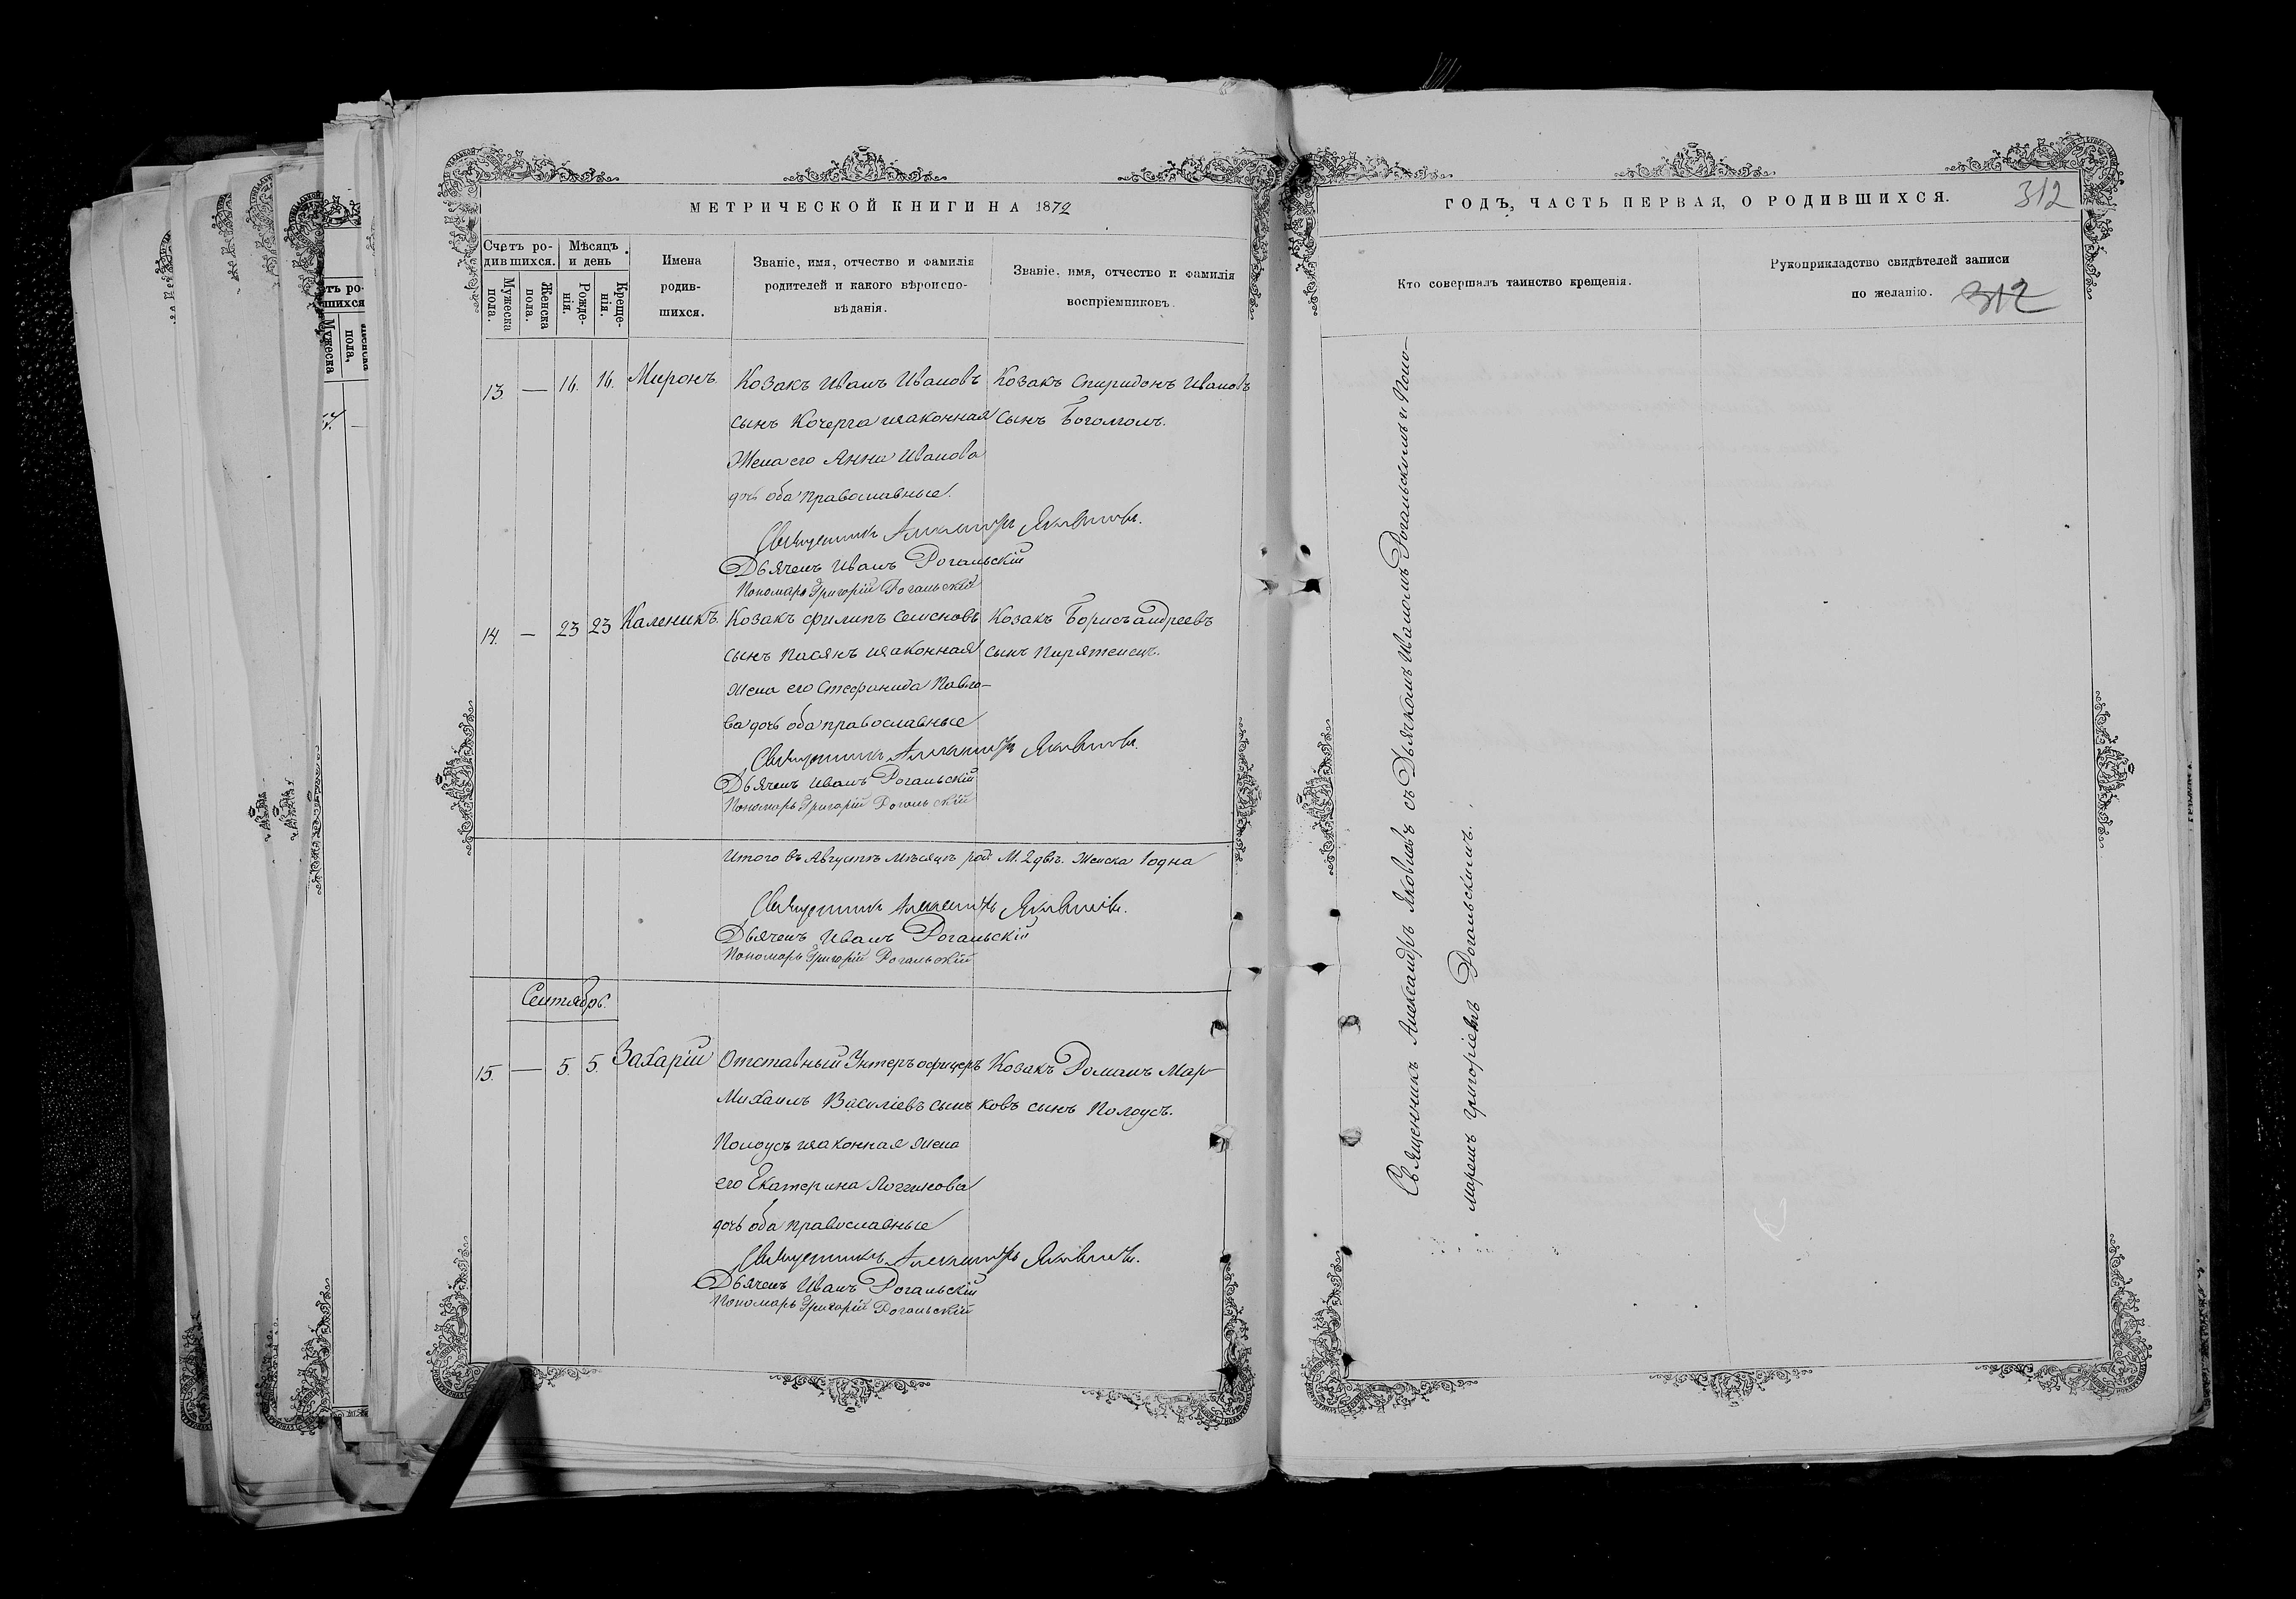 МЕТРИЧЕСКОЙ КНИГИ НА 1872
Счетъ ро-
дившихся.
Мѣсяцъ
и день
Мужеска
пола.
Женска
пола.
Рожде-
нія.
Креще-
нія.
Имена
родив-
шихся.
Званіе, имя, отчество и фамилія
родителей и какого вѣроиспо-
вѣданія.
Званіе, имя, отчество и фамилія
воспріемниковъ.
13. — 16. 16. Миронъ. Козакъ Иванъ Ивановъ Козакъ Спиридонъ Ивановъ
сынъ Кочерга изаконная сынъ Богомолъ.
Жена его Анна Иванова
дочь оба православные.
Священникъ Александръ Яковлевъ.
Дьячекъ Иванъ Рогальскій
Пономарь Григорій Рогальскій
14. — 23 23 Каленикъ. Козакъ Филипъ Семеновъ Козакъ Борисъ Андреевъ
сынъ Пасякъ изаконная сынъ Пирятенецъ.
жена его Стефанида Павло-
ва дочь оба православные
Священникъ Александръ Яковлевъ.
Дьячекъ Иванъ Рогальскій
Пономарь Григорій Рогальскій
Итого въ Августѣ мѣсяцѣ род. М. 2 два. Женска 1 одна
Священникъ Александръ Яковлевъ.
Дьячекъ Иванъ Рогальскій
Пономарь Григорій Рогальскій
Сентябрь.
15. — 5. 5. Захарій Отставный Унтеръ офицеръ Козакъ Романъ Мар-
Михаилъ Василіевъ сынъ ковъ сынъ Полоусъ.
Полоусъ изаконная жена
его Екатерина Логгинова
дочь оба православные
Священникъ Александръ Яковлевъ.
Дьячекъ Иванъ Рогальскій
Пономарь Григорій Рогальскій
ГОДЪ, ЧАСТЬ ПЕРВАЯ, О РОДИВШИХСЯ.
312
Кто совершалъ таинство крещенія.
Рукоприкладство свидѣтелей записи
по желанію.
312
Священникъ Александръ Яковлевъ съ Дьячкомъ Иваномъ Рогальскимъ и Поно-
маремъ Григоріемъ Рогальскимъ.
тъ ро-
шихся
Мужеска
пола,